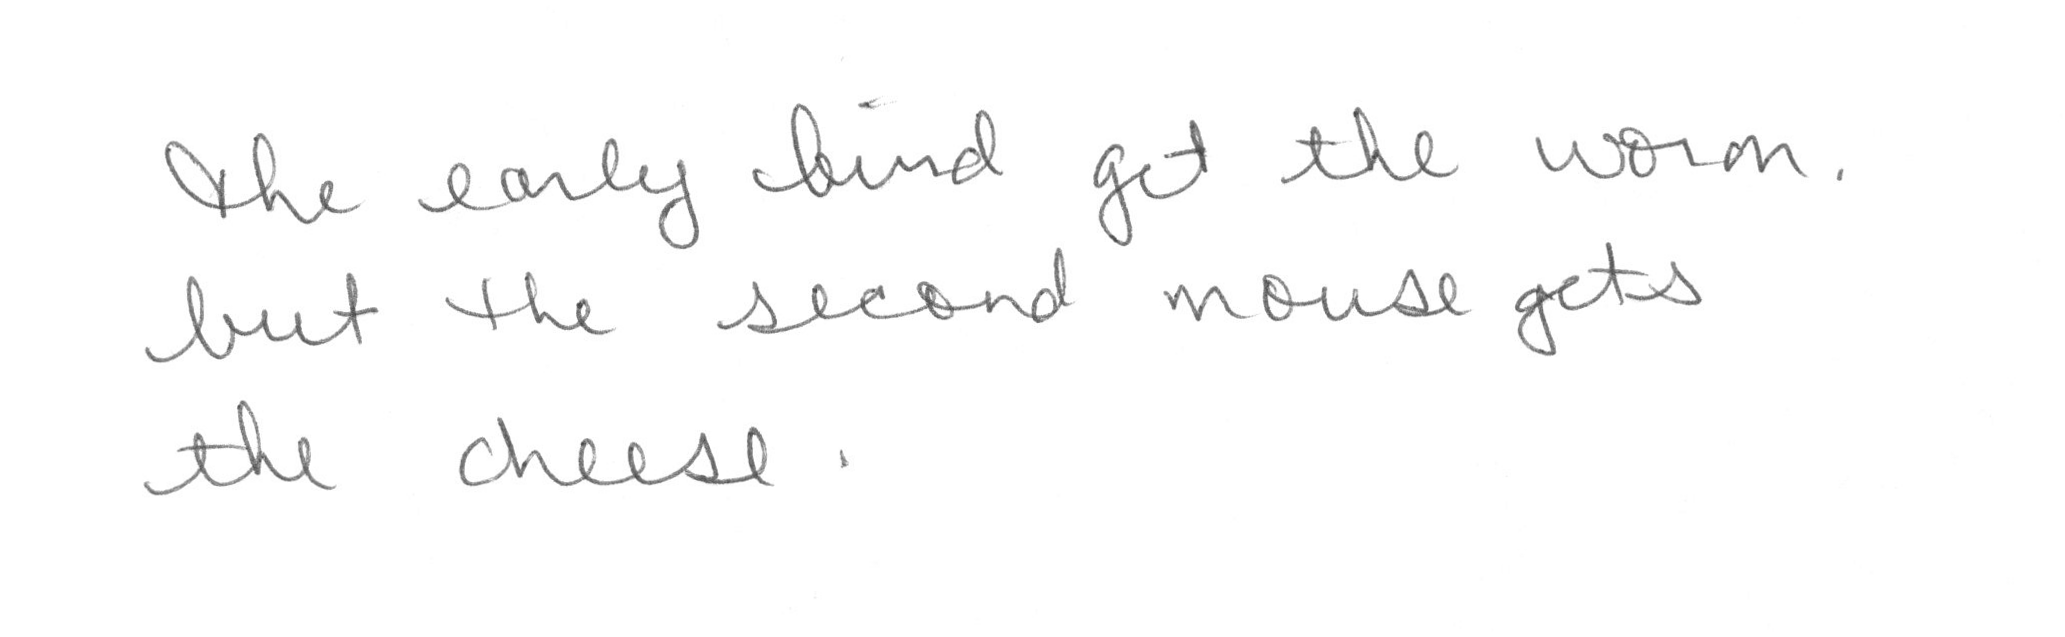 the early bird get the worm.
but the second mouse gets
the cheese.